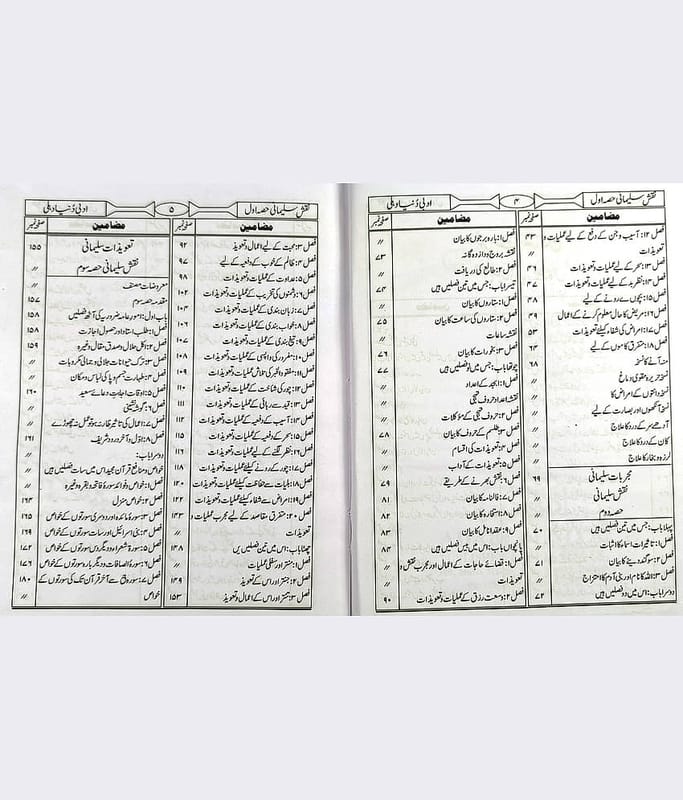 نقش سلیمانی حصہ اول
۴
ادبی دنیا دہلی
مضامین
صفحہ نمبر
فصل ۱۲: آسیب و جن کے دفع کے لیے عملیات و ۴۳
تعویذات //
فصل ۱۳: سحر کے لیے عملیات و تعویذات ۴۶
فصل ۱۴: نظر بد کے لیے عملیات و تعویذات ۴۷
فصل ۱۵: بچوں کے رونے کے لیے ۴۸
فصل ۱۶: مریض کا حال معلوم کرنے کے اعمال ۴۹
فصل ۱۷: امراض کی شفاء کیلئے تعویذات ۵۳
فصل ۱۸: متفرق کاموں کے لیے ۶۴
منہ آنے کا نسخہ ۶۸
نسخہ تریرہ مقوی دماغ //
نسخہ دانتوں کے امراض کا //
نسخہ آنکھوں اور بصارت کے لیے //
آدھے سر کے درد کا علاج //
کان کے درد کا علاج //
لرزہ و بخار کا علاج //
مجربات سلیمانی ۶۹
نقش سلیمانی //
حصہ دوم //
پہلا باب: جس میں تین فصلیں ہیں ۷۰
فصل ۱: تاثیرات اسماء کا اثبات //
فصل ۲: سوگند دینے کا بیان ۷۱
فصل ۳: اللہ کا نام اور بنی آدم کا امتزاج //
دوسرا باب: اس میں دو فصلیں ہیں ۷۲
مضامین
صفحہ نمبر
فصل ۱: بارہ برجوں کا بیان //
نقشہ بروج دوازدہ گانہ ۷۳
فصل ۲: طالع کی دریافت //
تیسرا باب: جس میں تین فصلیں ہیں ۷۴
فصل ۱: ستاروں کا بیان //
فصل ۲: ستاروں کی ساعت کا بیان ۷۵
نقشہ ساعات //
فصل ۳: بخورات کا بیان ۷۶
چوتھا باب: جس میں نو فصلیں ہیں ۷۷
فصل ۱: ابجد کے اعداد //
نقشہ اعداد حروف تہجی //
فصل ۲: حروف تہجی کے مؤکلات //
فصل ۳: طلسم کے حروف کا بیان ۷۸
فصل ۴: تعویذات کی اقسام //
فصل ۵: تعویذات کے آداب //
فصل ۶: نقش بھرنے کے طریقے ۷۹
فصل ۷: فالنامہ کا بیان ۸۱
فصل ۸: استخارہ کا بیان ۸۲
فصل ۹: عقد انامل کا بیان ۸۳
پانچواں باب: اس میں بیس فصلیں ہیں ۸۴
فصل ۱: قضائے حاجات کے اعمال اور مجرب نقش و //
تعویذات //
فصل ۲: وسعت رزق کے عملیات و تعویذات ۹۰
نقش سلیمانی حصہ اول
۵
ادبی دنیا دہلی
مضامین
صفحہ نمبر
فصل ۳: محبت کے لیے اعمال و تعویذ ۹۲
فصل ۴: ظالم کے خوف کے دفعیہ کے لیے ۹۷
فصل ۵: عداوت کے عملیات و تعویذات ۹۸
فصل ۶: دشمنوں کی تخریب کے عملیات و تعویذات ۱۰۲
فصل ۷: زبان بندی کے عملیات و تعویذات ۱۰۳
فصل ۸: خواب بندی کے عملیات و تعویذات ۱۰۶
فصل ۹: تیغ بندی کے عملیات و تعویذات ۱۰۷
فصل ۱۰: مفرور کی واپسی کے عملیات و تعویذات ۱۰۸
فصل ۱۱: مفقود الخبر کی تلاش عملیات و تعویذات ۱۰۹
فصل ۱۲: چور کی شناخت کے عملیات و تعویذات ۱۱۰
فصل ۱۳: قید سے رہائی کے عملیات و تعویذات ۱۱۱
فصل ۱۴: آسیب کے دفعیہ کے عملیات و تعویذات ۱۱۳
فصل ۱۵: سحر کے دفعیہ کے عملیات و تعویذات ۱۱۵
فصل ۱۶: نظر لگنے کے لیے عملیات و تعویذات ۱۱۶
فصل ۱۷: چور کے رونے کیلئے عملیات و تعویذات ۱۱۸
فصل ۱۸: بلیات سے حفاظت کیلئے عملیات و تعویذات ۱۲۰
فصل ۱۹: امراض سے شفاء کیلئے عملیات و تعویذات ۱۲۲
فصل ۲۰: متفرق مقاصد کے لیے مجرب عملیات و ۱۳۳
تعویذات //
چھٹا باب: اس میں تین فصلیں ہیں ۱۴۸
فصل ۱: منتر اور سفلی عملیات //
فصل ۲: جنتر اور اس کے تعویذ ۱۴۹
فصل ۳: ہنتر اور اس کے اعمال و تعویذ ۱۵۳
مضامین
صفحہ نمبر
تعویذات سلیمانی ۱۵۵
نقش سلیمانی حصہ سوم //
معروضات مصنف //
مقدمہ حصہ سوم ۱۵۷
باب اول: امور عامہ ضروریہ کی آٹھ فصلیں ۱۵۸
فصل ۱: طلب استاد اور حصول اجازت ۱۵۸
فصل ۲: اکل حلال و صدق مقال وغیرہ ۱۵۹
فصل ۳: ترک حیوانات جلالی و جمالی و مکروہات //
فصل ۴: طہارت جسم و پاکی لباس و مکان //
فصل ۵: اوقات اجابت دعائے سعید ۱۶۰
فصل ۶: گوشہ نشینی //
فصل ۷: اعمال کی تاثیر ظاہر نہ ہو تو عمل نہ چھوڑے //
فصل ۸: اول و آخر درود شریف ۱۶۱
دوسرا باب: //
خواص و منافع قرآن مجید اس میں سات فصلیں ہیں //
فصل ۱: خواص و فوائد سورۂ فاتحہ و بقرہ وغیرہ //
فصل ۲: خواص منزل ۱۶۳
فصل ۳: سورۂ مائدہ اور دوسری سورتوں کے خواص ۱۶۵
فصل ۴: بنی اسرائیل اور سات سورتوں کے خواص ۱۶۹
فصل ۵: سورۂ شعراء و دیگر دس سورتوں کے خواص ۱۷۲
فصل ۶: سورۂ الصافات و دیگر بارہ سورتوں کے خواص ۱۷۶
فصل ۷: سورۂ فتح سے آخر قرآن تک کی سورتوں کے ۱۸۰
خواص //